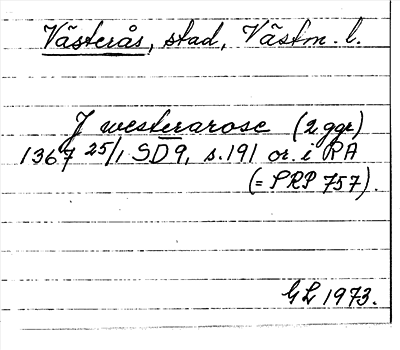 Västerås, stad, Västm. l.
J westerarose (2 ggr)
1367 25/1 SD9, s.191 or. i RA
(= SRP 757).
GL 1973.